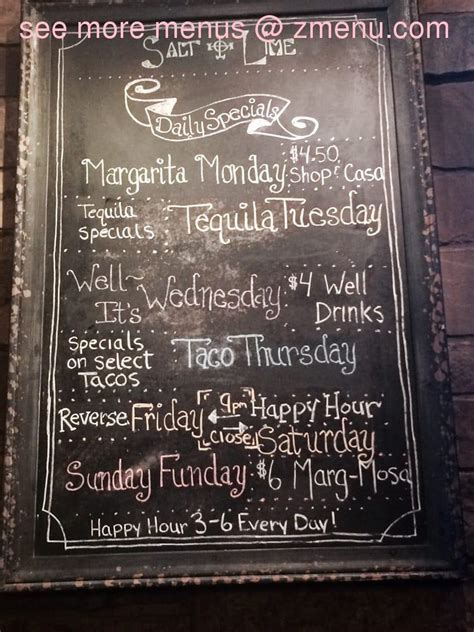 see more menus @ zmenu.com
Salt Lime
Daily Specials
Margarita Monday $4.50 Shop Casa
Tequila specials Tequila Tuesday
Well~ It's Wednesday $4 Well Drinks
Specials on select Tacos Taco Thursday
Reverse Friday 9pm Happy Hour
Close Saturday
Sunday Funday $6 Marg-Mosa
Happy Hour 3-6 Every Day!